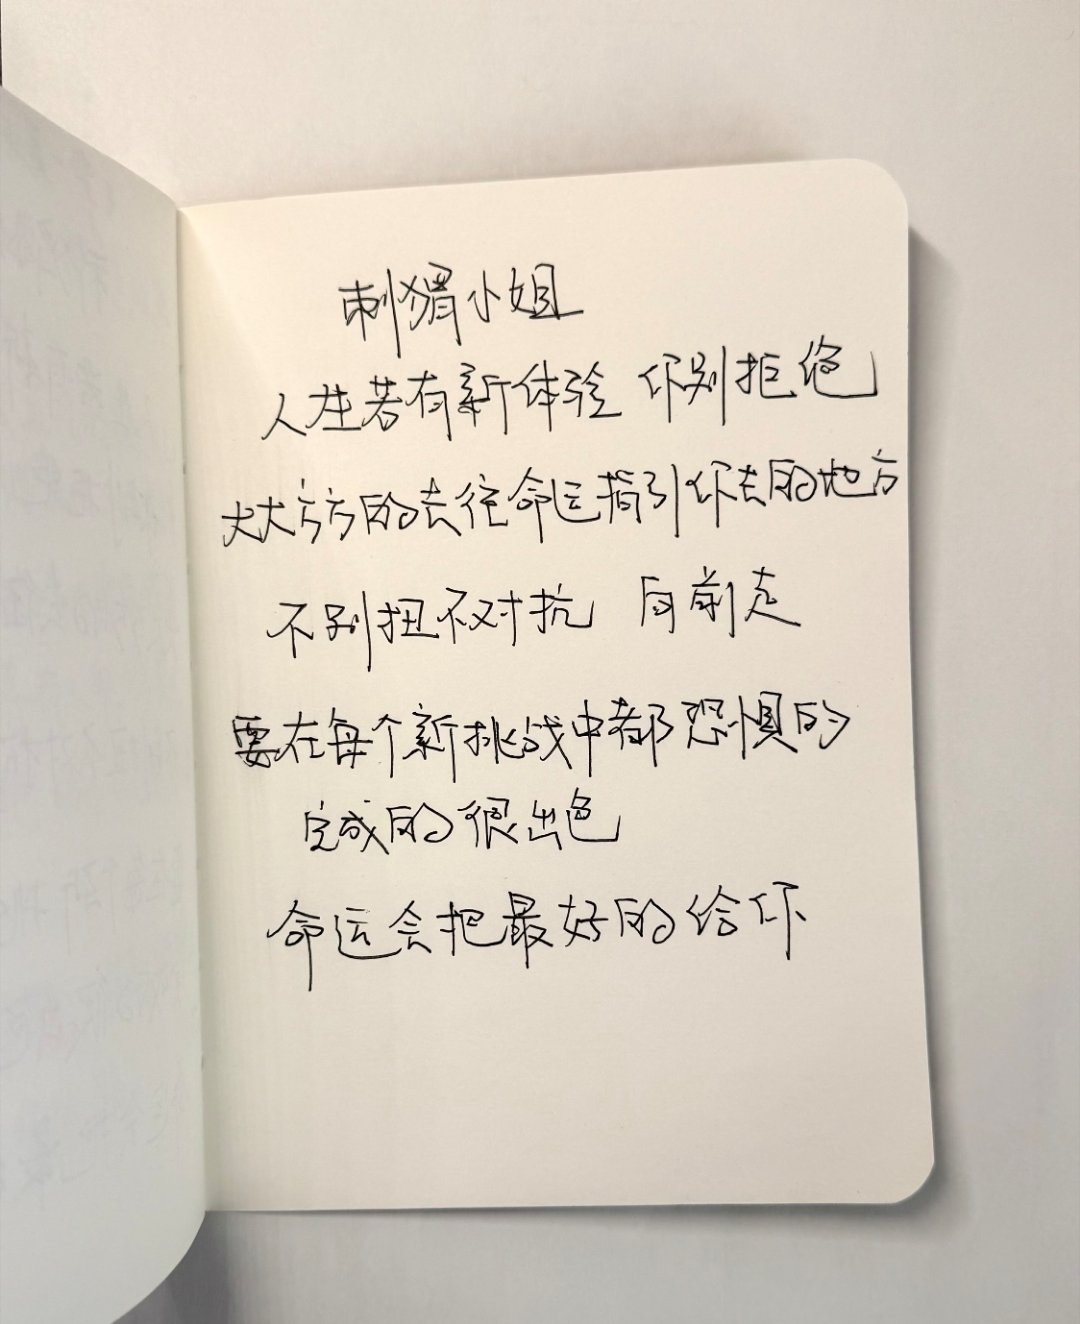 刺猬小姐
人生若有新体验 你别拒绝
大大方方的去往命运指引你去的地方
不别扭不对抗 向前走
要在每个新挑战中都恐惧的
完成的很出色
命运会把最好的给你